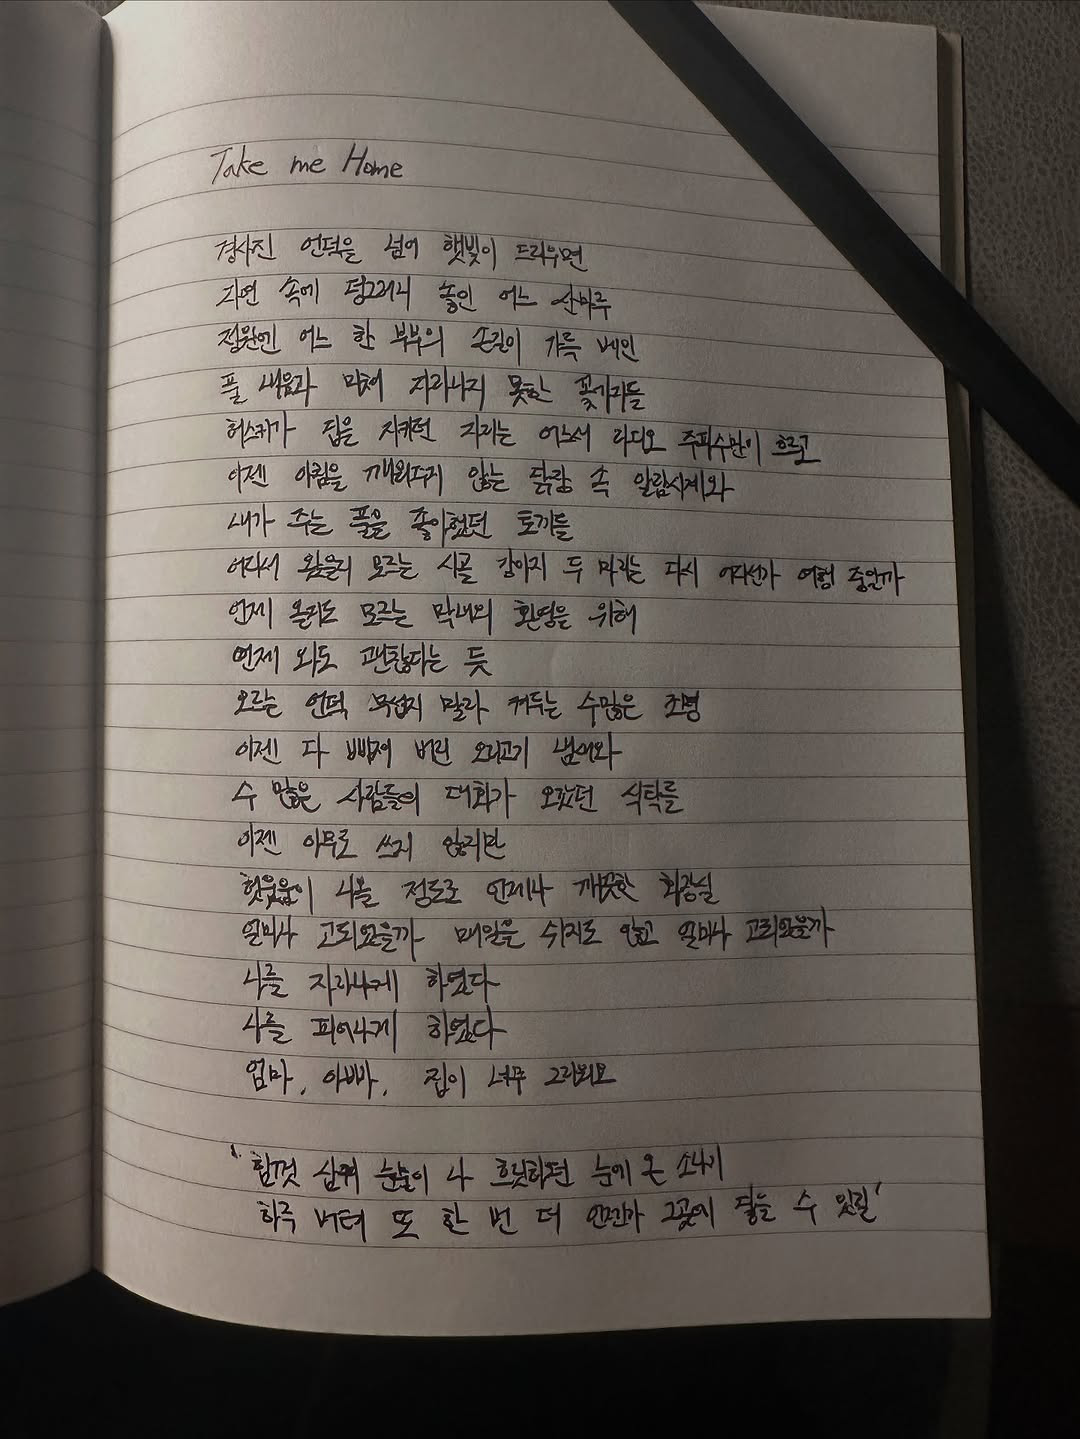 Take me Home
경사진 언덕을 넘어 햇빛이 드리우면
자연 속에 덩그러니 놓인 어느 산마루
정원엔 어느 한 부부의 손길이 가득 베인
풀 내음과 미처 자라나지 못한 꽃가지들
허스키가 집을 지키던 자리는 어느새 라디오 주파수만이 흐르고
이젠 아침을 깨워주지 않는 닭장 속 알람시계와
내가 주는 풀을 좋아했던 토끼들
어디서 왔을지 모르는 시골 강아지 두 마리는 다시 어디선가 여행 중일까
언제 올지도 모르는 막내의 환영을 위해
언제 와도 괜찮다는 듯
오르는 언덕 무섭지 말라 켜두는 수많은 조명
이젠 다 빠져 버린 오리고기 냄새와
수 많은 사람들의 대화가 오갔던 식탁들
이젠 아무도 쓰지 않지만
헛웃음이 나올 정도로 언제나 깨끗한 화장실
얼마나 고되었을까 매일을 쉬지도 않고 얼마나 고되었을까
나를 자라나게 하였다
나를 피어나게 하였다
엄마, 아빠, 집이 너무 그리워요
' 힘껏 삼켜 눈물이 나 흐릿하던 눈에 온 소나기
하루 버텨 또 한 번 더 언젠가 그곳에 닿을 수 있길 '